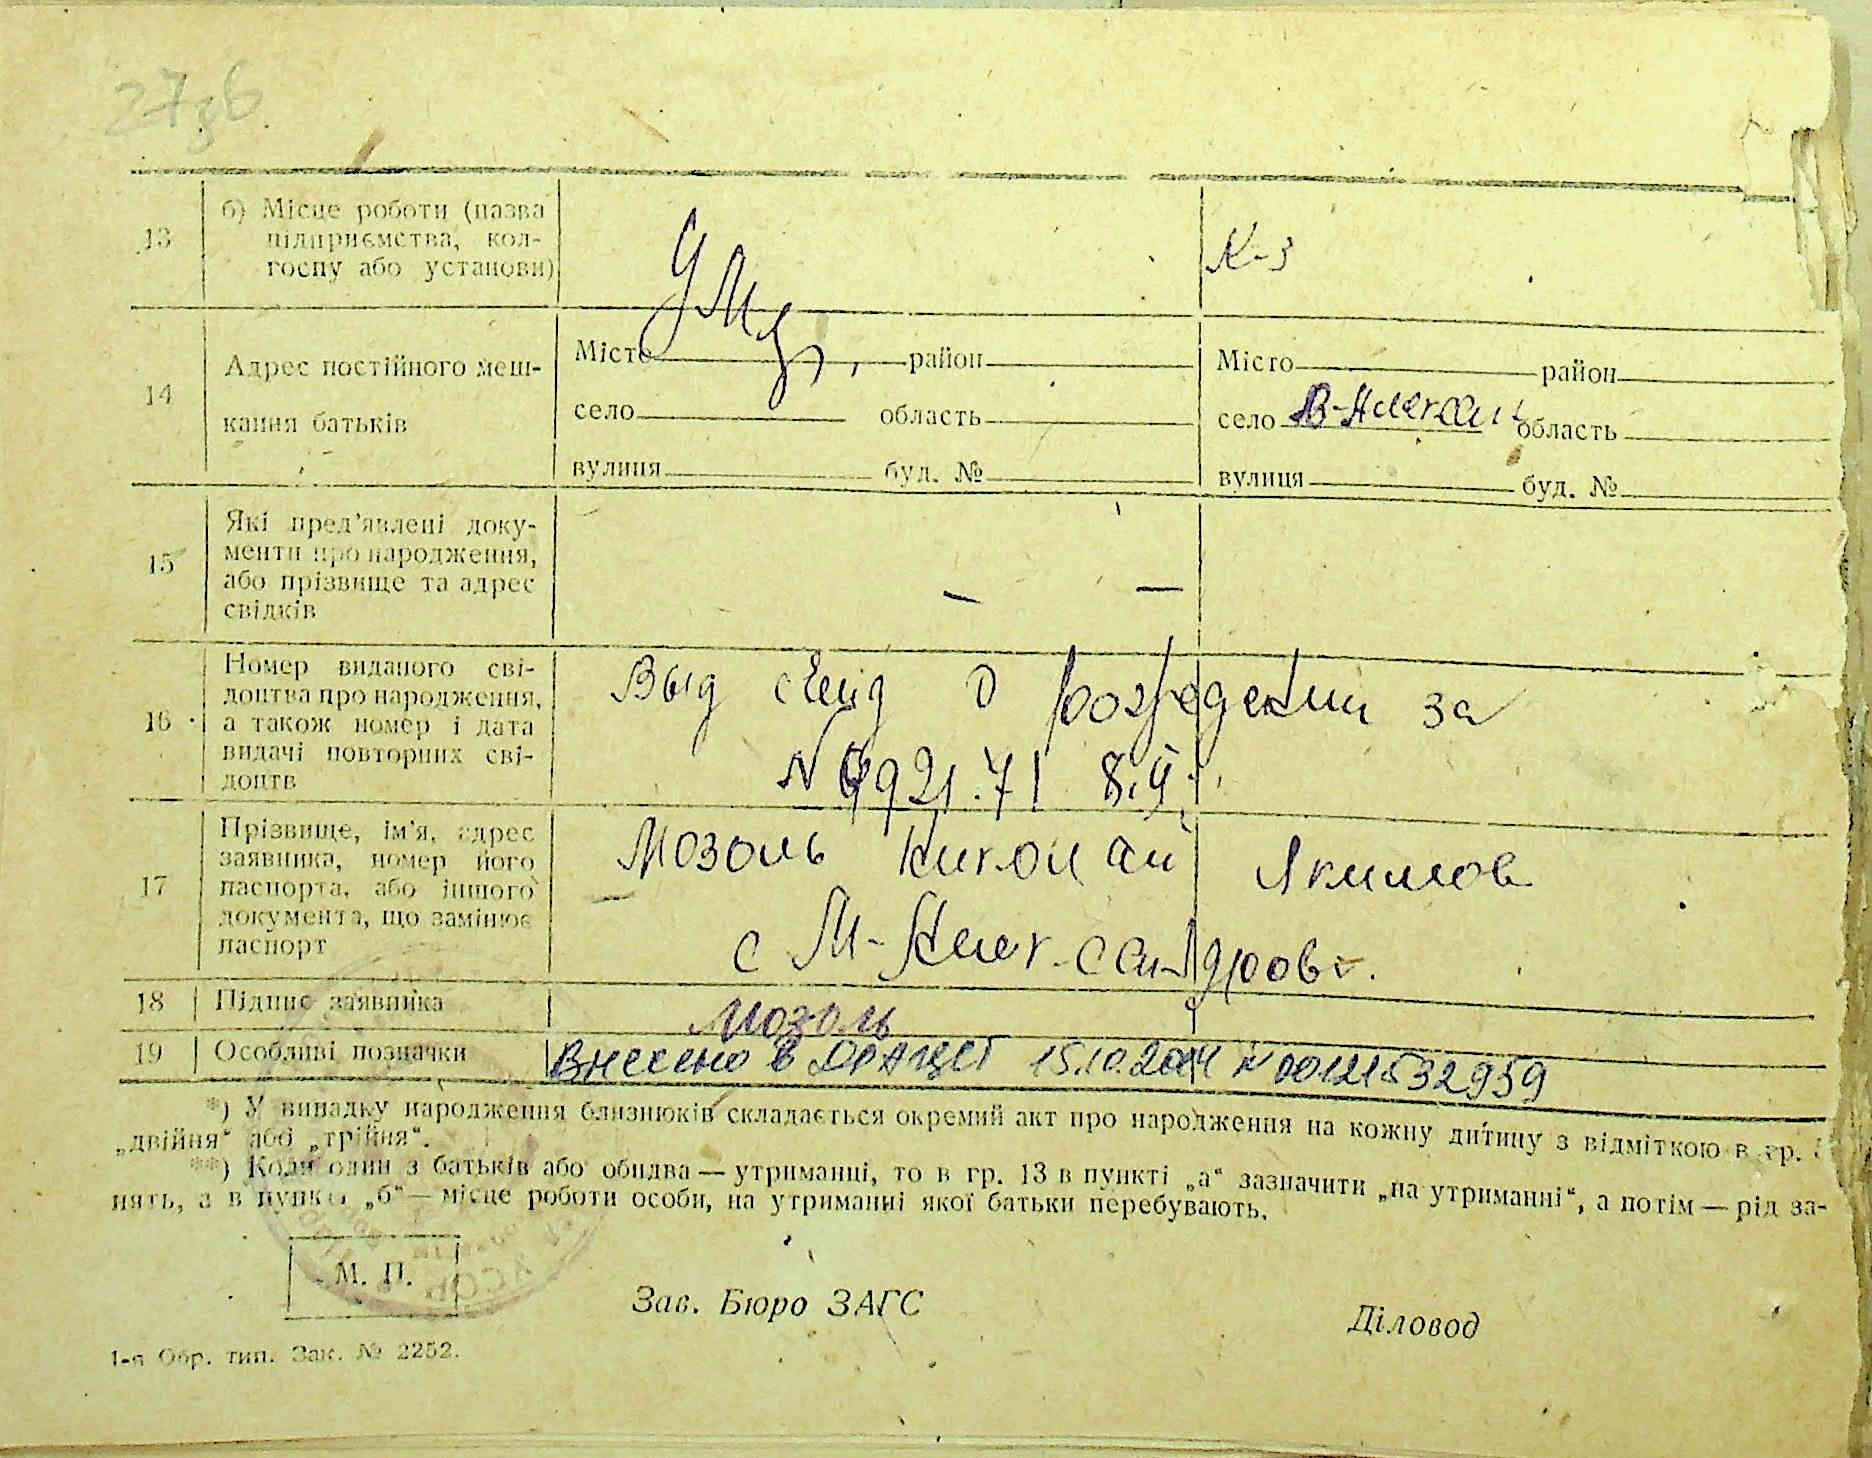 27зв
13
б) Місце роботи (назва
підприємства, кол-
госпу або установи)
К-з
14
Адрес постійного меш-
кання батьків
Місто район
село область
вулиця буд. №
Місто район
село В- область
вулиця буд. №
15
Які пред'явлені доку-
менти про народження,
або прізвище та адрес
свідків
— —
16
Номер виданого сві-
доцтва про народження,
а також номер і дата
видачі повторних сві-
доцтв
Выд свид о рождении за
N 921.71
17
Прізвище, ім'я, адрес
заявника, номер його
паспорта, або іншого
документа, що замінює
паспорт
Мозоль Николай Якимов
с М-Александровка.
18
Підпис заявника
Мозоль
19
Особливі позначки
Внесено в ДРАЦСГ 15.10.2014 N 00121532959
*) У випадку народження близнюків складається окремий акт про народження на кожну дитину з відміткою в гр.
„двійня“ або „трійня“.
**) Коли один з батьків або обидва — утриманці, то в гр. 13 в пункті „а“ зазначити „на утриманні“, а потім — рід за-
нять, а в пункті „б“ — місце роботи особи, на утриманні якої батьки перебувають.
М. П.
Зав. Бюро ЗАГС
Діловод
1-а Обр. тип. Зак. № 2252.